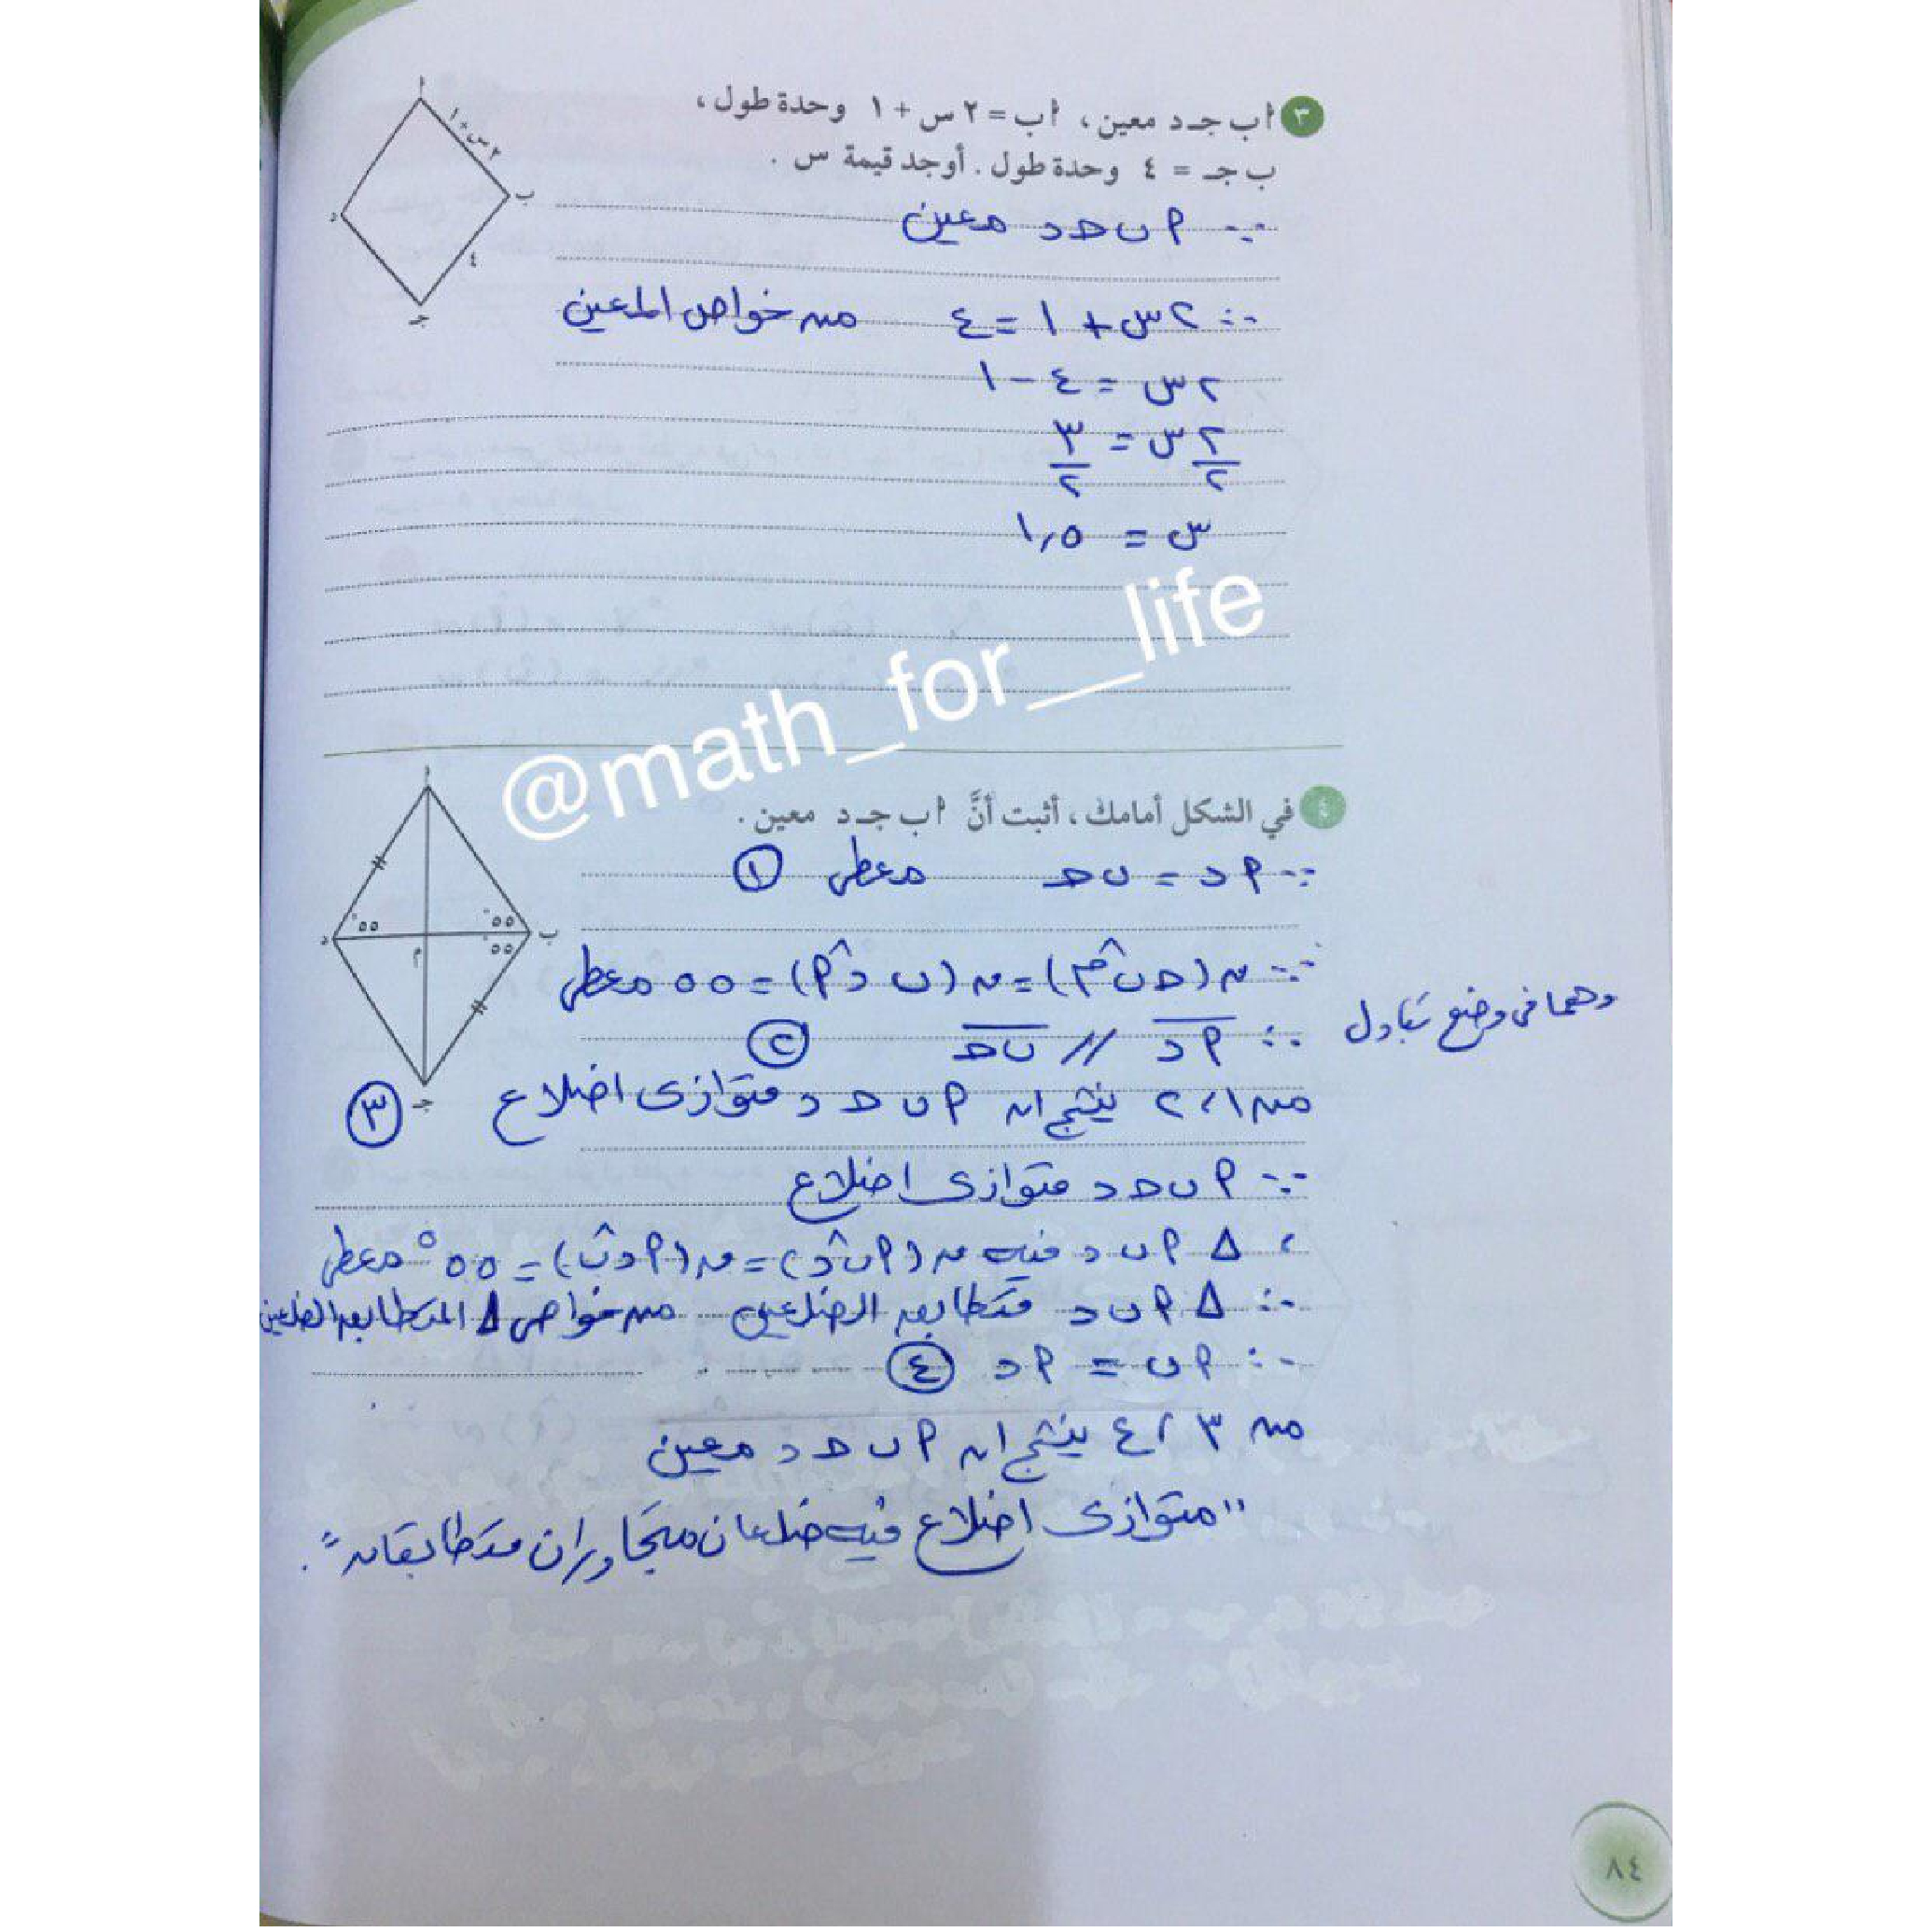 ٣ أ ب جـ د معين ، أ ب = ٢ س + ١ وحدة طول ،
ب جـ = ٤ وحدة طول . أوجد قيمة س .
أ
٢ س + ١
ب
د
٤
جـ
∵ أ ب حـ د معين
∴ ٢ س + ١ = ٤ من خواص المعين
٢ س = ٤ - ١
٢ س / ٢ = ٣ / ٢
س = ١,٥
@math_for__life
٤ في الشكل أمامك ، أثبت أنَّ أ ب جـ د معين .
أ
٥٥° ٥٥°
د ب
م ٥٥°
جـ
∵ أ د = ب حـ معطى ①
∵ م (حـ ب̂ م) = م (ب د̂ أ) = ٥٥ معطى
وهما في وضع تبادل
∴ أ د // ب حـ ②
من ١ ، ٢ ينتج ان أ ب حـ د متوازى اضلاع ③
∵ أ ب حـ د متوازى اضلاع
، Δ أ ب د فيه م (أ ب̂ د) = م (أ د̂ ب) = ٥٥° معطى
∴ Δ أ ب د متطابق الضلعين من خواص Δ المتطابق الضلعين
∴ أ ب = أ د ④
من ٣ ، ٤ ينتج ان أ ب حـ د معين
"متوازى اضلاع فيه ضلعان متجاوران متطابقان".
٨٤